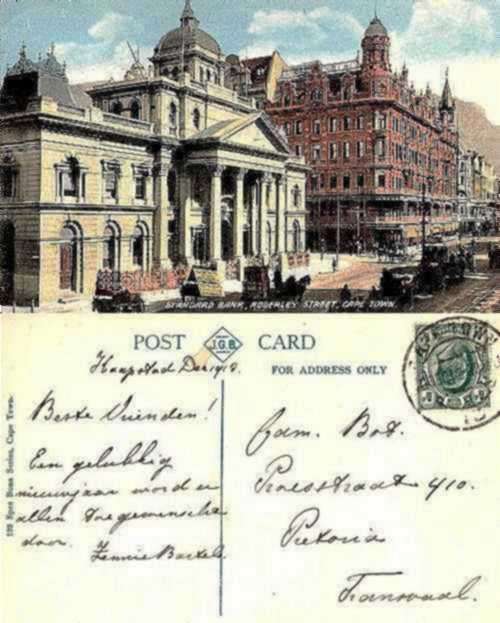 STANDARD BANK, ADDERLEY STREET, CAPE TOWN.
POST J.G.B. CARD
FOR ADDRESS ONLY
Kaapstad Dec 1913.
Beste Vrienden!
Een gelukkig
nieuwjaar word u
allen toegewenscht
door.
Fam. Bot.
Proesstraat 410.
Pretoria
Transvaal.